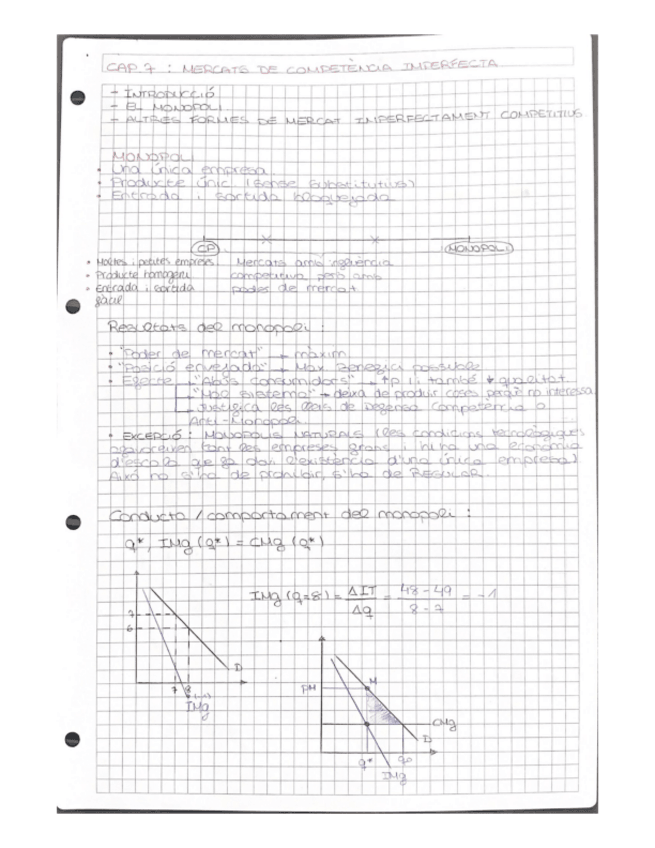 CAP. 7 : MERCATS DE COMPETÈNCIA IMPERFECTA
- INTRODUCCIÓ
- EL MONOPOLI
- ALTRES FORMES DE MERCAT IMPERFECTAMENT COMPETITIUS
MONOPOLI
• Una única empresa
• Producte únic (sense substitutius)
• Entrada i sortida bloquejada
CP
MONOPOLI
• Moltes i petites empreses
• Producte homogeni
• Entrada i sortida fàcil
Mercats amb aparència
competitiva però amb
poder de mercat
Resultats del monopoli :
• "Poder de mercat" → màxim
• "Posició envejada" → Màx benefici possible
• Efecte → "Abús consumidors" → ↑p i, també ↓ qualitat
→ deixa de produir coses perquè no interessa
→ Justifica les lleis de Defensa Competència o
Anti-Monopoli
• EXCEPCIÓ : MONOPOLIS NATURALS (les condicions tecnològiques
afavoreixen tant les empreses grans i hi ha una economia
d'escala que fa que l'existència d'una única empresa)
Això no s'ha de prohibir, s'ha de REGULAR.
Conducta / comportament del monopoli :
q*, IMg (q*) = CMg (q*)
IMg (q=8) = ΔIT / Δq = 48 - 49 / 8 - 7 = -1
7
6
7 8
D
IMg
PM
M
CMg
D
q*
IMg